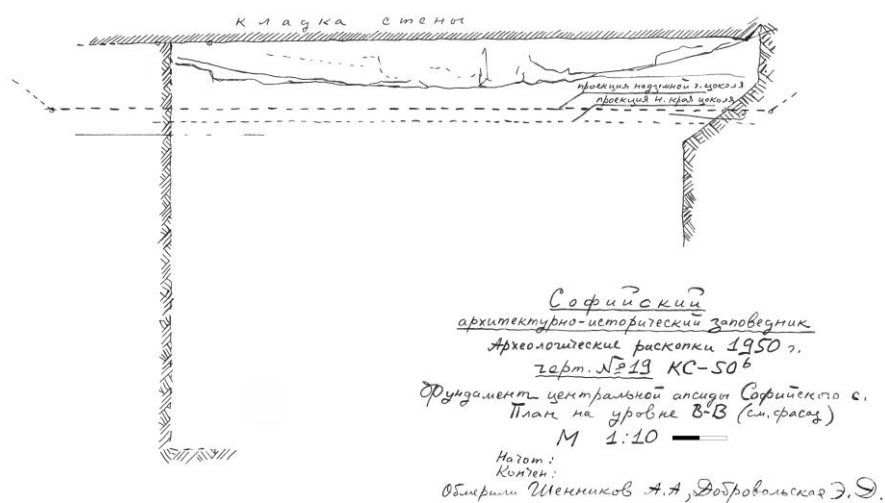 кладка стены
проекция надземной ч. цоколя
проекция н. края цоколя
Софийский
архитектурно-исторический заповедник
Археологические раскопки 1950 г.
черт. №19 КС-50б
Фундамент центральной апсиды Софийского с.
План на уровне В-В (см. фасад)
М 1:10
Начат:
Кончен:
Обмерили Шенников А.А, Добровольская Э.Д.